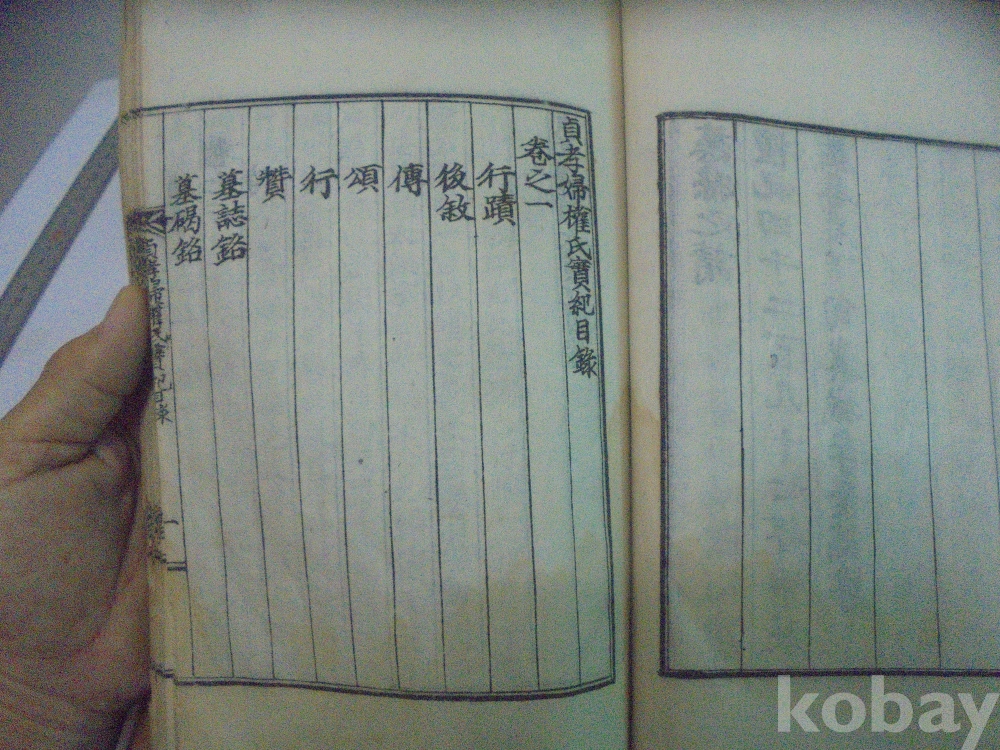 貞孝婦權氏實紀目錄
卷之一
行蹟
後敘
傳
頌
行
贊
墓誌銘
墓碣銘
kobay